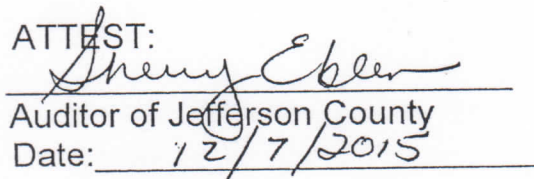 ATTEST:
Sherry Eblen
Auditor of Jefferson County
Date: 12/7/2015